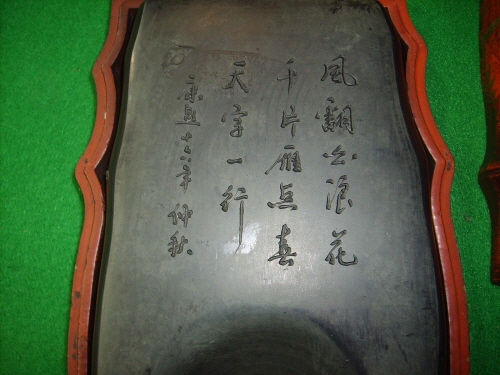 風翻白浪花
千片雁点青
天字一行
康熙十六年 仲秋